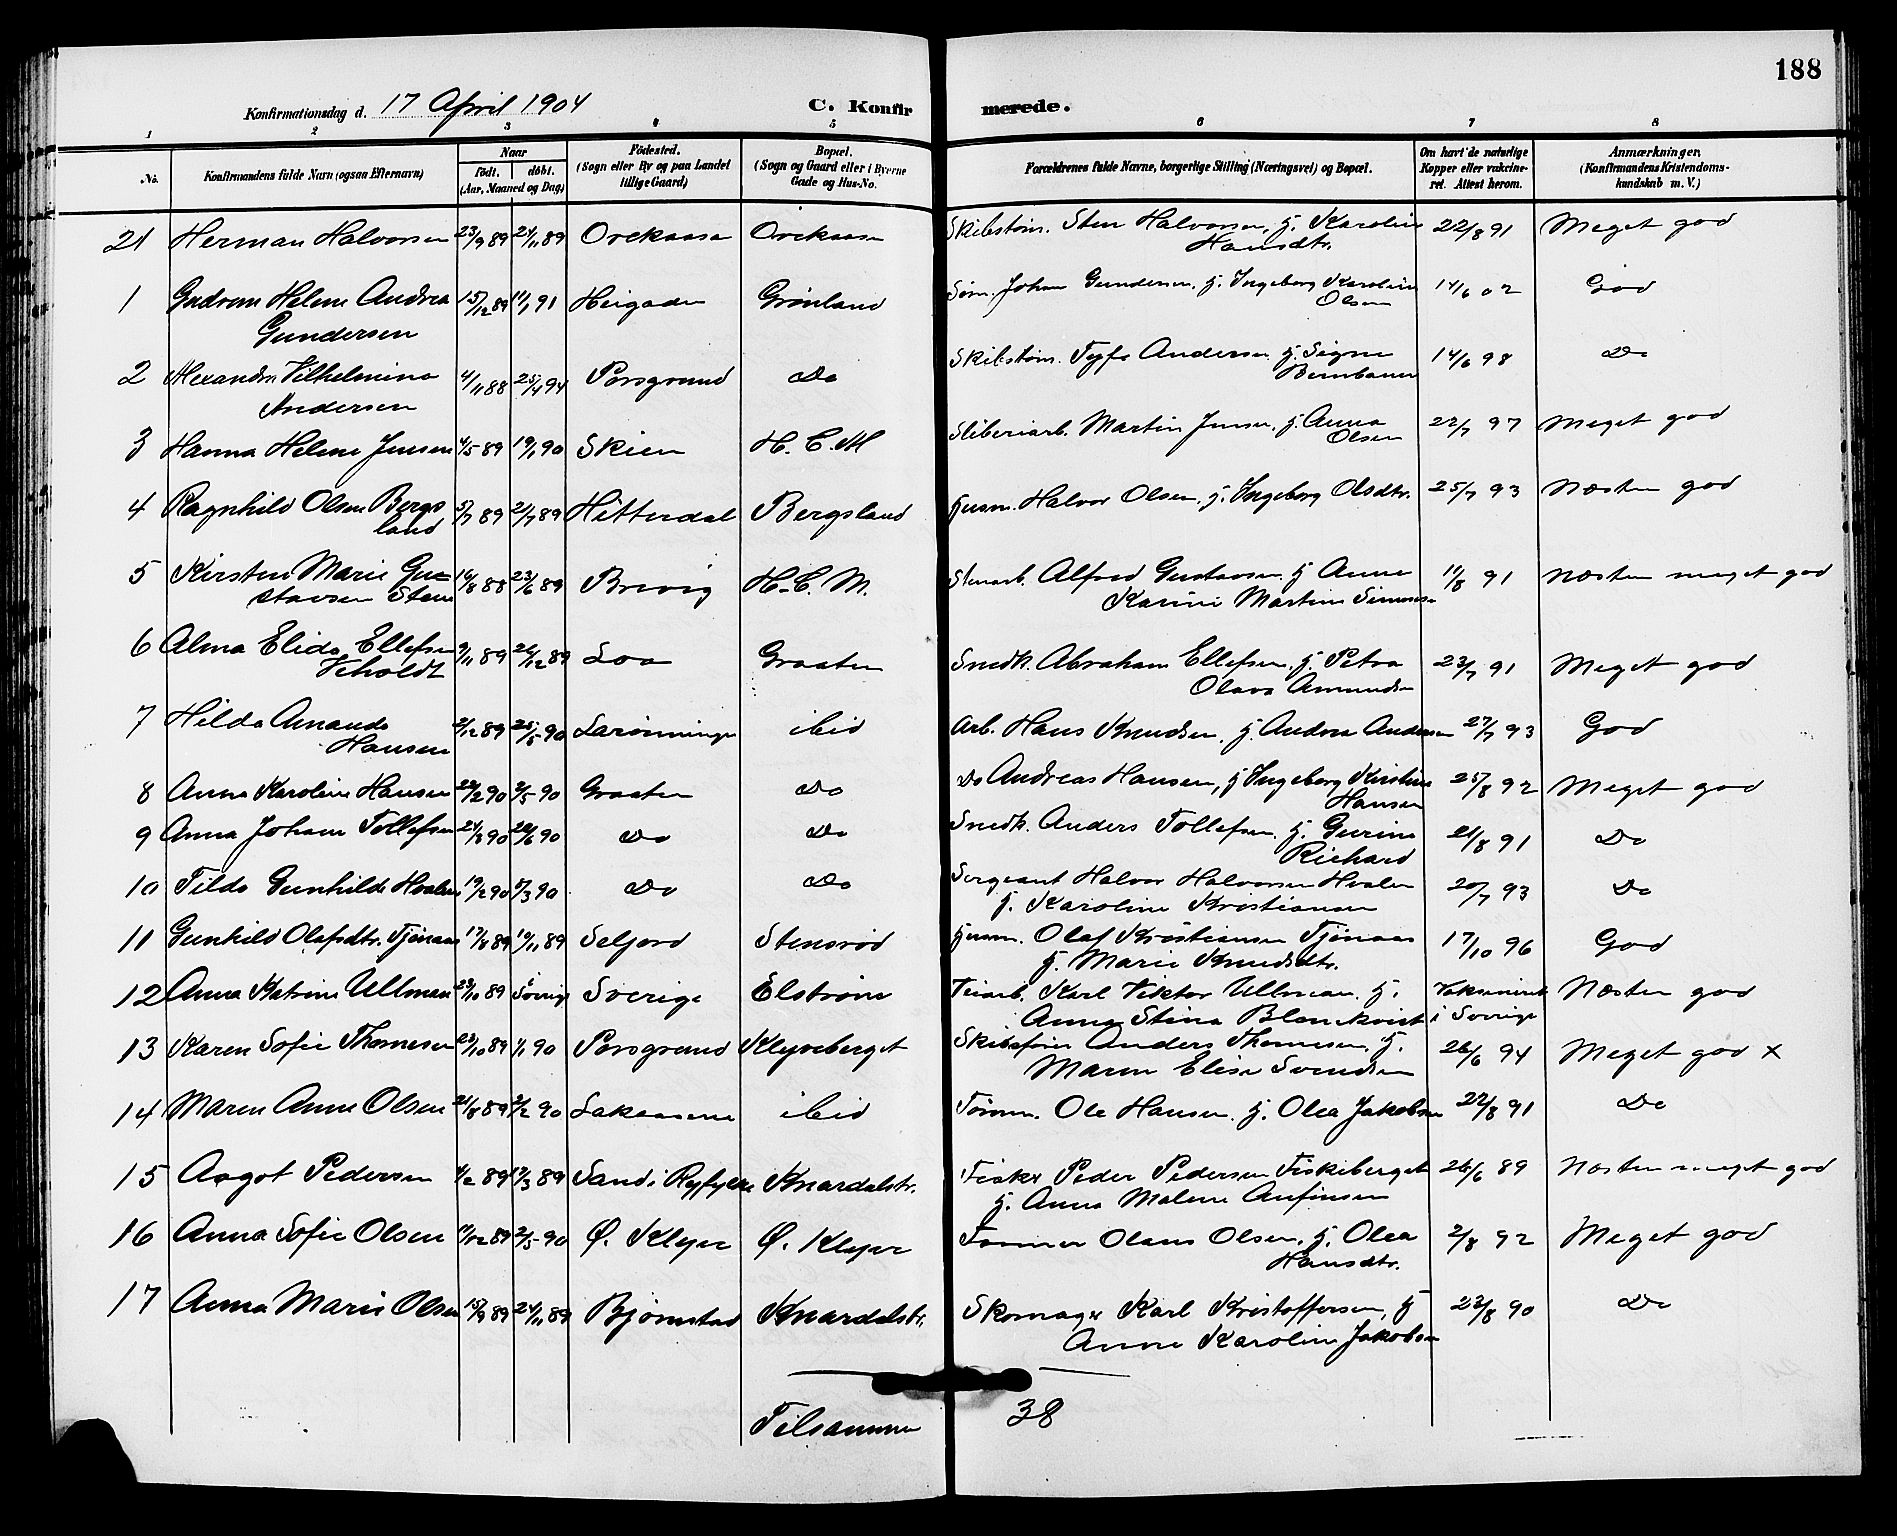 188
Konfirmationsdag d. 17 April 1904
C. Konfirmerede.
1 2 3 4 5 6 7 8
No. Konfirmandens fulde Navn (ogsaa Efternavn) Naar født. døbt. (Aar, Maaned og Dag) Fødested. (Sogn eller By og paa Landet tillige Gaard) Bopæl. (Sogn og Gaard eller i Byerne Gade og Hus-No. Forældrenes fulde Navne, borgerlige Stilling (Næringsvei) og Bopæl. Om havt de naturlige Kopper eller vaccineret. Attest herom. Anmærkninger, (Konfirmandens Kristendomskundskab m. V.)
21 Herman Halvorsen 23/9 89 24/11 89 Ovekaasa Ovekaasa Skibstøm. Sten Halvorsen, Hj. Karoline 22/8 91 Meget god
Hansdtr.
1 Gudrun Helene Andrea 15/12 89 11/1 91 Heigaden Grønland Søm. Johan Gundersen, Hj. Ingeborg Karoline 14/6 02 God
Gundersen Olsen
2 Alexandra Vilhelmina 4/11 88 25/4 94 Porsgrund Do Skibstøm. Andersen Hj. Signe 14/6 98 Do
Andersen
3 Hanna Helene Jensen 4/5 89 19/1 90 Skien H. C. M Sliberiarb. Martin Jensen, Hj. Anna 22/7 97 Meget god
Olsen
4 Ragnhild Olsen Bergs 5/7 89 21/7 89 Hitterdal Bergsland Husm. Halvor Olsen, Hj. Ingeborg Olsdtr. 25/7 93 Næsten god
land
5 Kirsten Marie Gu= 16/8 88 23/6 89 Brevig H. C. M. Stenarb. Alfred Gustavsen Hj. Anne 11/8 91 Næsten meget god
stavsen Sten Karine Martine Simonsen
6 Alma Elida Ellefsen 9/11 89 26/12 89 Loa Graaten Snedk. Abraham Ellefsen, Hj. Petra 23/7 91 Meget god
Veholdt Olava Amundsen
7 Hilda Amanda 2/12 89 25/5 90 Larønninge ibid Arb. Hans Knudsen, Hj. Andrea Andersen 27/7 93 God
Hansen
8 Anna Karoline Hansen 22/2 90 3/5 90 Graaten Do Do Andreas Hansen, Hj Ingeborg Kirstine 25/8 92 Meget god
Hansen
9 Anna Johane Tollefsen 24/3 90 22/6 90 Do Do Snedk. Anders Tollefsen, Hj. Gurine 21/8 91 Do
Richard
10 Tilda Gunhilda Hvalen 19/2 90 5/3 90 Do Do Sergeant Halvor Halvorsen Hvalen 20/7 93 Do
Hj. Karoline Kristiansen
11 Gunhild Olafsdtr. Tjønaas 17/8 89 10/11 89 Seljord Stensrød Husm. Olaf Kristiansen Tjønaas 17/10 96 God
Hj. Marie Knudsdtr.
12 Anna Katrine Ullman 23/10 89 Sverige Sverige Elstrøm Teiarb. Karl Viktor Ullman, Hj. Vaksineret Næsten god
Anna Stina Blomkvist i Sverige
13 Karen Sofie Thomesen 23/10 89 1/1 90 Porsgrund Klyveberget Skibsfører Anders Thomesen, Hj. 26/6 94 Meget god x
Maren Elise Svendsen
14 Maren Anne Olsen 21/8 89 2/2 90 Lakaasene ibid Tømm. Ole Hansen, Hj. Olea Jakobsen 22/8 91 Do
15 Aagot Pedersen 1/2 89 17/3 89 Sand i Ryfylke Knardalstr. Fisker Peder Pedersen Fiskeberget 26/6 89 Næsten meget god
Hj. Anna Malene Anfinsen
16 Anna Sofie Olsen 11/12 89 2/5 90 Ø. Klyve Ø. Klyve Tømmer Olaus Olsen, Hj. Olea 2/8 92 Meget god
Hansdtr.
17 Anna Marie Olsen 15/9 89 24/11 89 Bjørnstad Knardalstr. Skomager Karl Kristoffersen, Hj 23/8 90 Do
Anne Karoline Jakobsen
Tilsammen 38